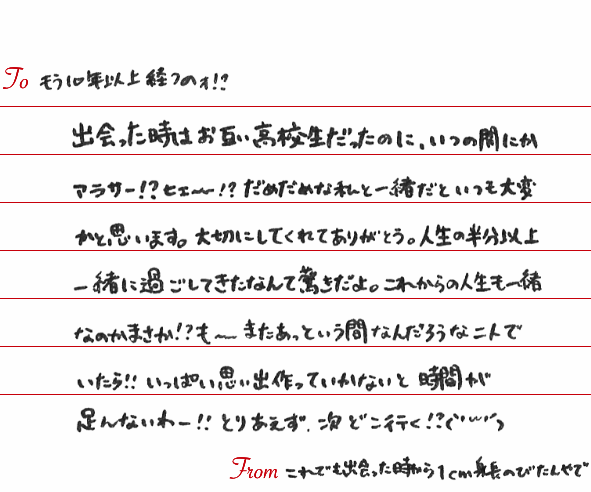 To もう10年以上経つのォ!?
出会った時はお互い高校生だったのに、いつの間にか
アラサー!?ヒェ〜!?だめだめな私と一緒だといつも大変
かと思います。大切にしてくれてありがとう。人生の半分以上
一緒に過ごしてきたなんて驚きだよ。これからの人生も一緒
なのかまさか!?も〜またあっという間なんだろうな二人で
いたら!!いっぱい思い出作っていかないと時間が
足んないわー!!とりあえず、次どこ行く!?
From これでも出会った時から1cm身長のびたんやで